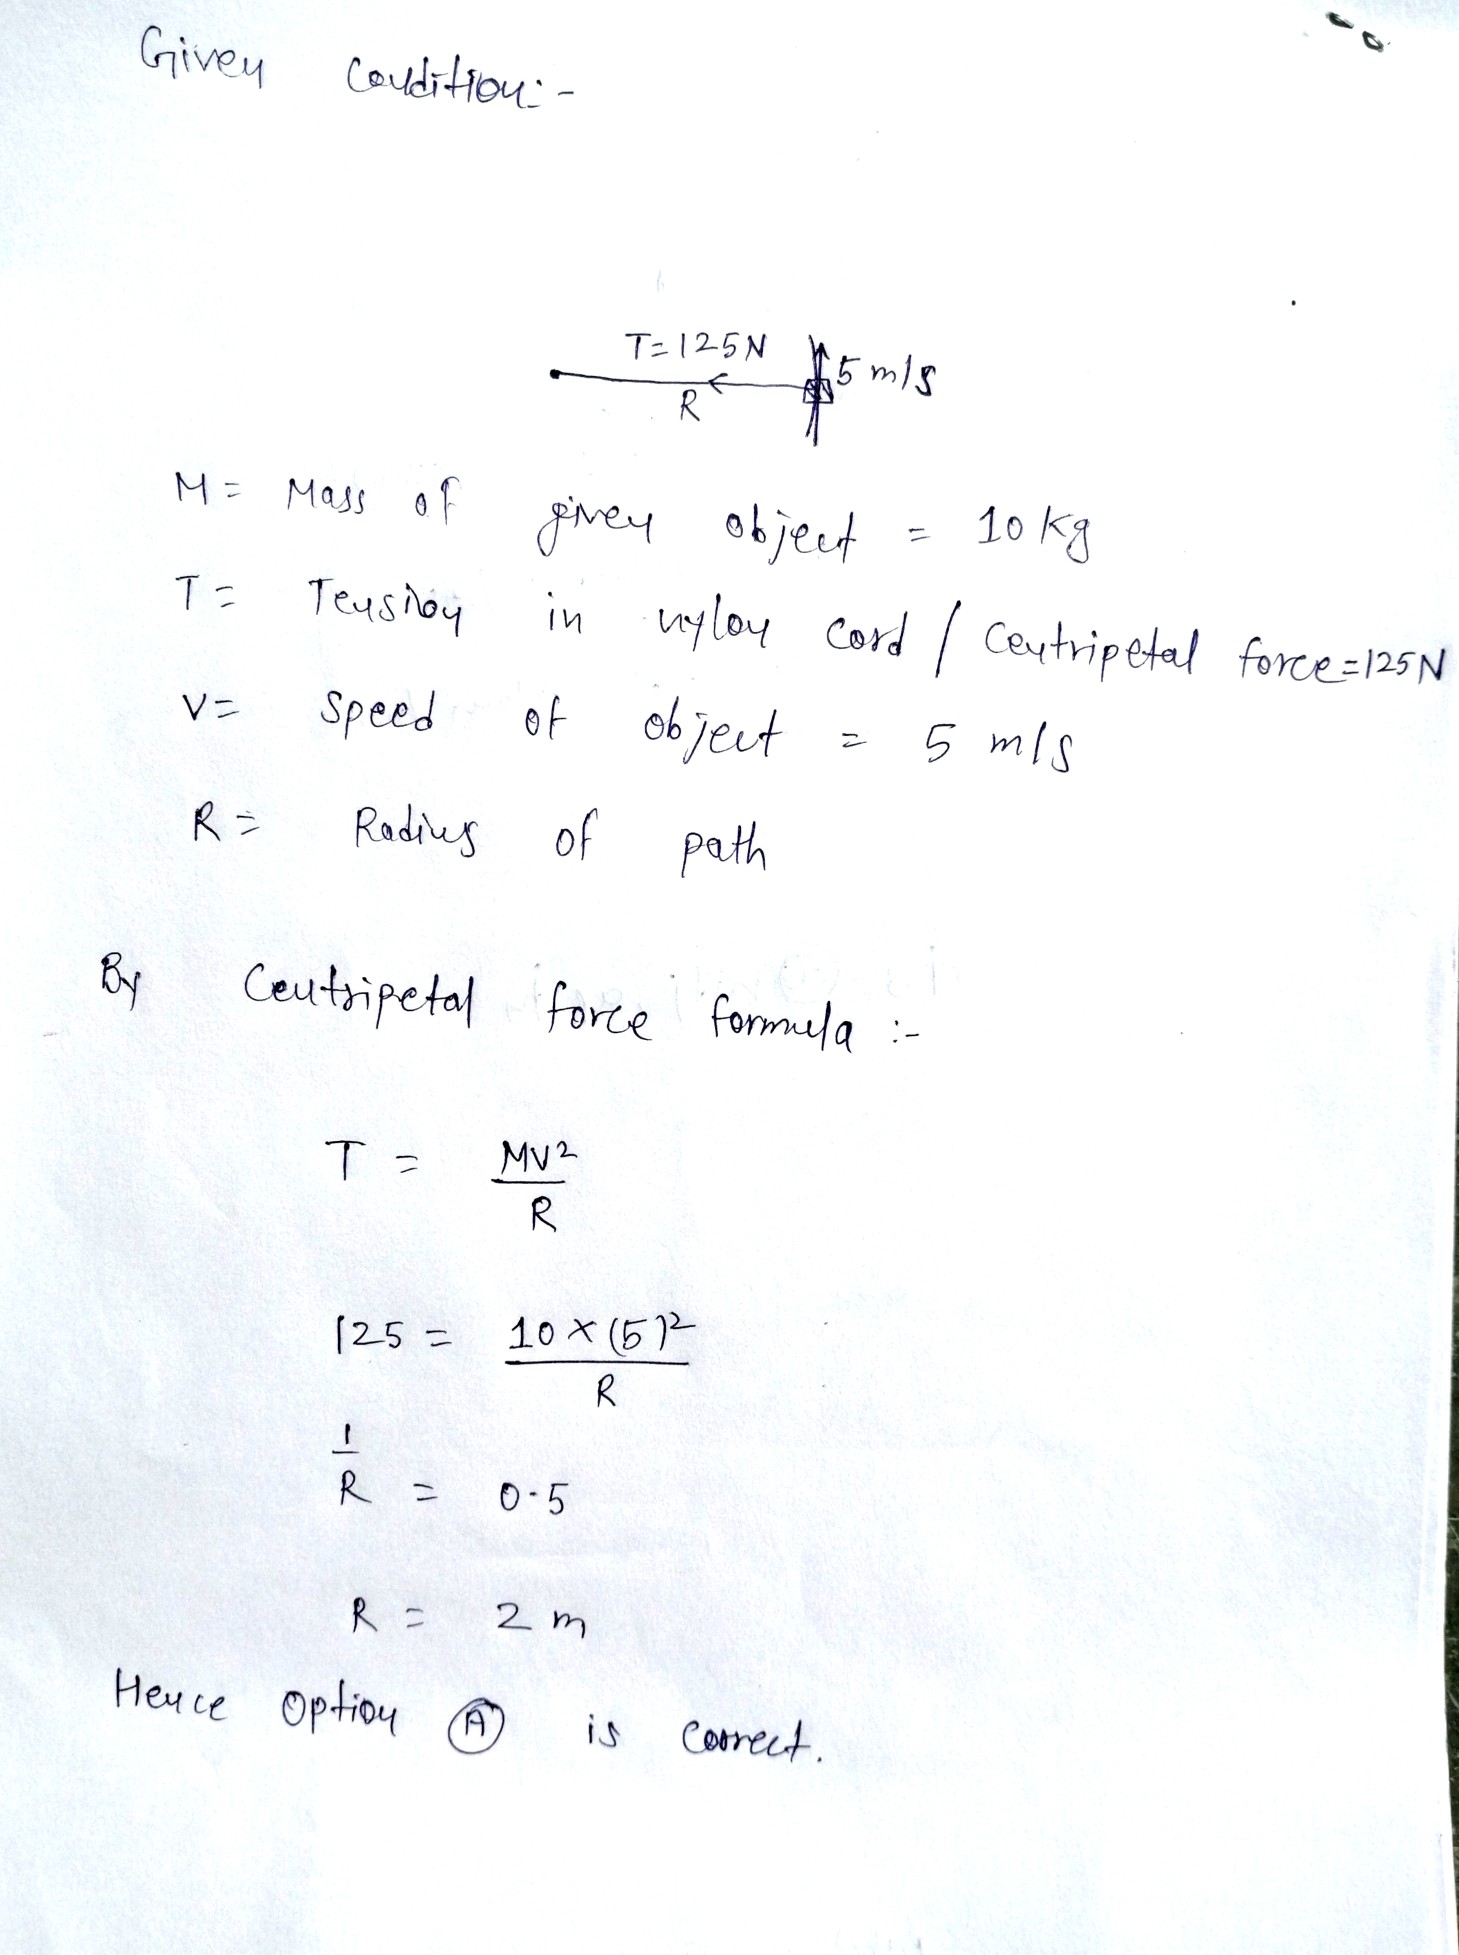 Given Condition:-
T=125N
5 m/s
R
M= Mass of given object = 10 kg
T= Tension in nylon cord / Centripetal force=125N
V= Speed of object = 5 m/s
R= Radius of path
By Centripetal force formula :-
T = MV²
R
125 = 10 × (5)²
R
1
R = 0.5
R = 2 m
Hence option (A) is correct.